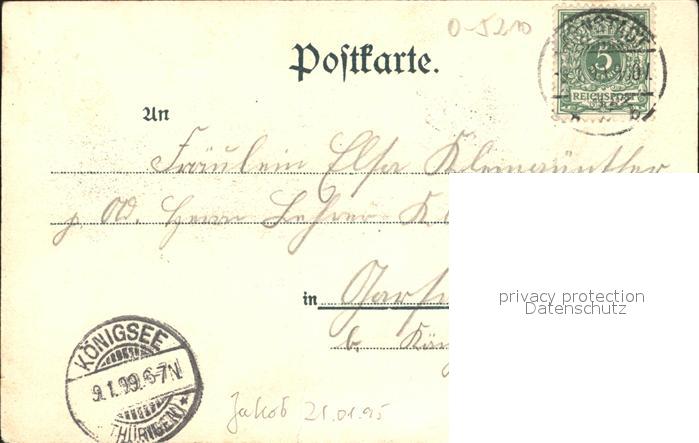 O-5210
Postkarte.
5
REICHSPOST
An
Fräulein Elsa Kleingünther
p. Ad. Herrn Lehrer K
in
b. Kön
privacy protection
Datenschutz
KÖNIGSEE
9.1.99.6-7N
(THÜRINGEN)
Jakob 21.01.95